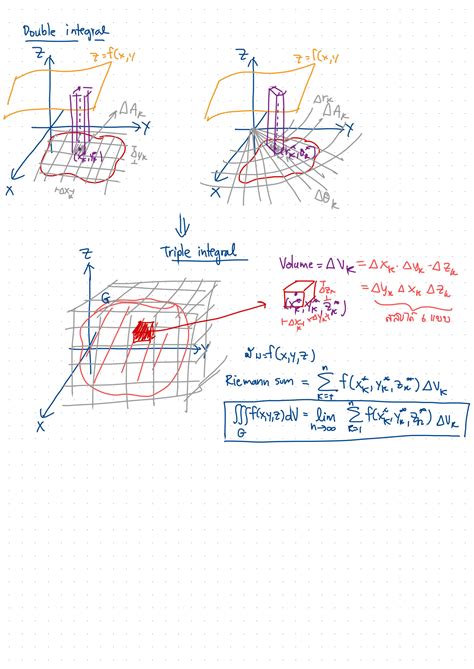 Double integral
Z
z=f(x,y
ΔA_k
Y
Δy_k
(x_k^*, y_k^*)
Δx_k
X
Z
z=f(x,y
Δr_k
ΔA_k
Y
(r_k^*, θ_k^*)
Δθ_k
X
⇓
Triple integral
Z
G
Y
X
Volume = ΔV_k = Δx_k · Δy_k · Δz_k
= Δy_k Δx_k Δz_k
สลับได้ 6 แบบ
Δz_k
(x_k^*, y_k^*, z_k^*)
Δx_k Δy_k
=f(x,y,z)
Riemann sum = ∑_{k=1}^{n} f(x_k^*, y_k^*, z_k^*) ΔV_k
∭_G f(x,y,z)dV = lim_{n→∞} ∑_{k=1}^{n} f(x_k^*, y_k^*, z_k^*) ΔV_k